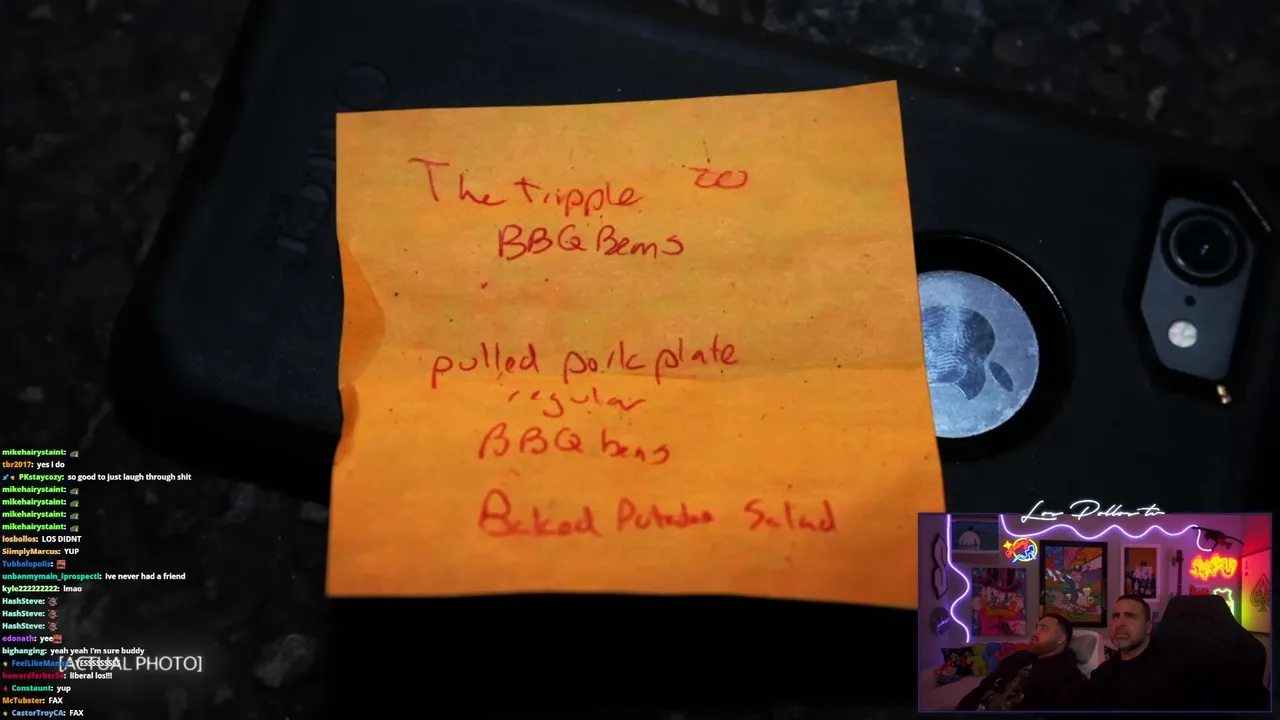 The tripple
BBQ Beans
pulled pork plate
regular
BBQ beans
Baked Potatoe Salad
Los Pollos tv
mikehairystaint:
tbr2017: yes i do
PKstaycozy: so good to just laugh through shit
mikehairystaint:
mikehairystaint:
mikehairystaint:
mikehairystaint:
losbollos: LOS DIDNT
SiimplyMarcus: YUP
Tubbalopolis:
unbanmymain_iprospecti: ive never had a friend
kyle222222222: lmao
HashSteve:
HashSteve:
HashSteve:
edonath: yee
bighanging: yeah yeah I'm sure buddy
[ACTUAL PHOTO]
YESSSSSSSS
howardferber54: liberal los!!!
Constaunt: yup
McTubster: FAX
CastorTroyCA: FAX